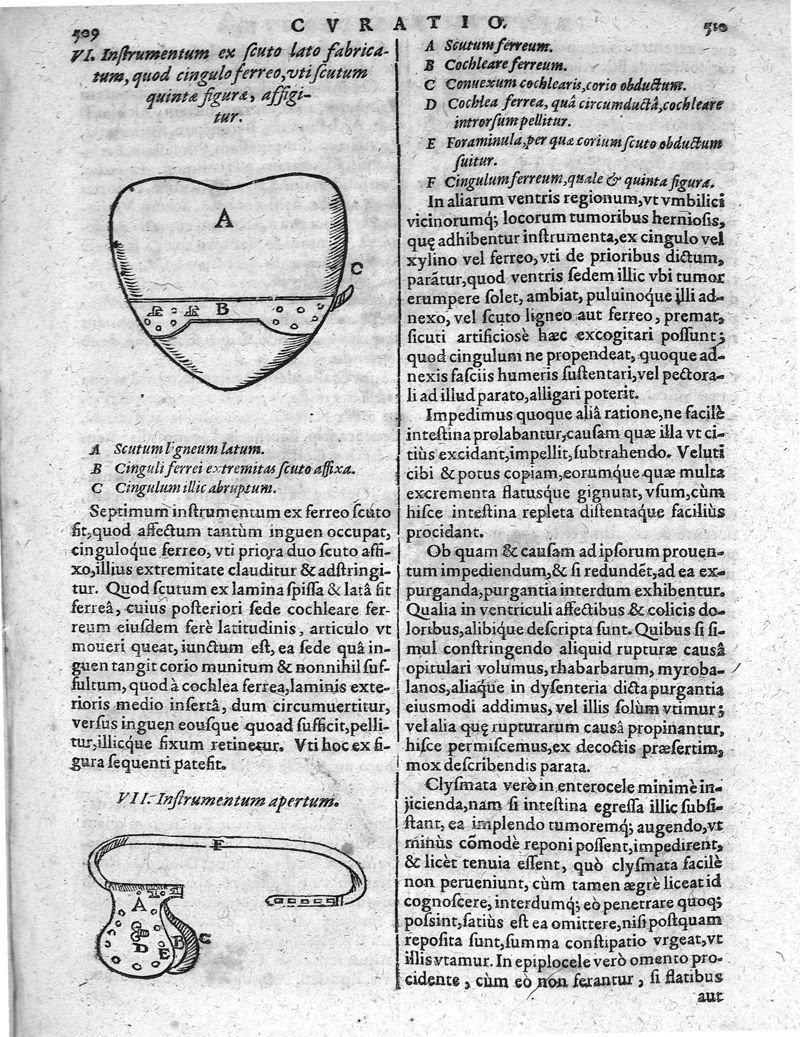 509
CVRATIO.
510
VI. Inſtrumentum ex ſcuto lato fabrica-
tum, quod cingulo ferreo, vti ſcutum
quintæ figuræ, affigi-
tur.
A
C
B
A Scutum ligneum latum.
B Cinguli ferrei extremitas ſcuto affixa.
C Cingulum illic abruptum.
Septimum inſtrumentum ex ferreo ſcuto
fit, quod affectum tantùm inguen occupat,
cinguloque ferreo, vti priora duo ſcuto affi-
xo, illius extremitate clauditur & adſtringi-
tur. Quod ſcutum ex lamina ſpiſſa & latâ fit
ferreâ, cuius poſteriori ſede cochleare fer-
reum eiuſdem ferè latitudinis, articulo vt
moueri queat, iunctum eſt, ea ſede quâ in-
guen tangit corio munitum & nonnihil ſuf-
fultum, quod à cochlea ferrea, laminis exte-
rioris medio inſertâ, dum circumuertitur,
verſus inguen eouſque quoad ſufficit, pelli-
tur, illicque fixum retinetur. Vti hoc ex fi-
gura ſequenti pateſit.
VII. Inſtrumentum apertum.
F
A
D
E
B
C
A Scutum ferreum.
B Cochleare ferreum.
C Conuexum cochlearis, corio obductum.
D Cochlea ferrea, quâ circumductâ, cochleare
introrſum pellitur.
E Foraminula, per quæ corium ſcuto obductum
ſuitur.
F Cingulum ferreum, quale & quinta figuræ.
In aliarum ventris regionum, vt vmbilici
vicinorumq; locorum tumoribus hernioſis,
quę adhibentur inſtrumenta, ex cingulo vel
xylino vel ferreo, vti de prioribus dictum,
parãtur, quod ventris ſedem illic vbi tumor
erumpere ſolet, ambiat, puluinoque illi ad-
nexo, vel ſcuto ligneo aut ferreo, premat,
ſicuti artificioſè hæc excogitari poſſunt;
quod cingulum ne propendeat, quoque ad-
nexis faſciis humeris ſuſtentari, vel pectora-
li ad illud parato, alligari poterit.
Impedimus quoque aliâ ratione, ne facilè
inteſtina prolabantur, cauſam quæ illa vt ci-
tiùs excidant, impellit, ſubtrahendo. Veluti
cibi & potus copiam, eorumque quæ multa
excrementa flatusque gignunt, vſum, cùm
hiſce inteſtina repleta diſtentaque faciliùs
procidant.
Ob quam & cauſam ad ipſorum prouen-
tum impediendum, & ſi redundẽt, ad ea ex-
purganda, purgantia interdum exhibentur.
Qualia in ventriculi affectibus & colicis do-
loribus, alibique deſcripta ſunt. Quibus ſi ſi-
mul conſtringendo aliquid rupturæ cauſâ
opitulari volumus, rhabarbarum, myroba-
lanos, aliaque in dyſenteria dicta purgantia
eiuſmodi addimus, vel illis ſolùm vtimur;
vel alia quę rupturarum cauſâ propinantur,
hiſce permiſcemus, ex decoctis præſertim,
mox deſcribendis parata.
Clyſmata verò in enterocele minimè in-
jicienda, nam ſi inteſtina egreſſa illic ſubſi-
ſtant, ea implendo tumoremq; augendo, vt
minùs cõmodè reponi poſſent, impedirent,
& licèt tenuia eſſent, quò clyſmata facilè
non perueniunt, cùm tamen ægrè liceat id
cognoſcere, interdumq; eò penetrare quoq;
poſſint, ſatiùs eſt ea omittere, niſi poſtquam
repoſita ſunt, ſumma conſtipatio vrgeat, vt
illis vtamur. In epiplocele verò omento pro-
cidente, cùm eò non ferantur, ſi flatibus
aut